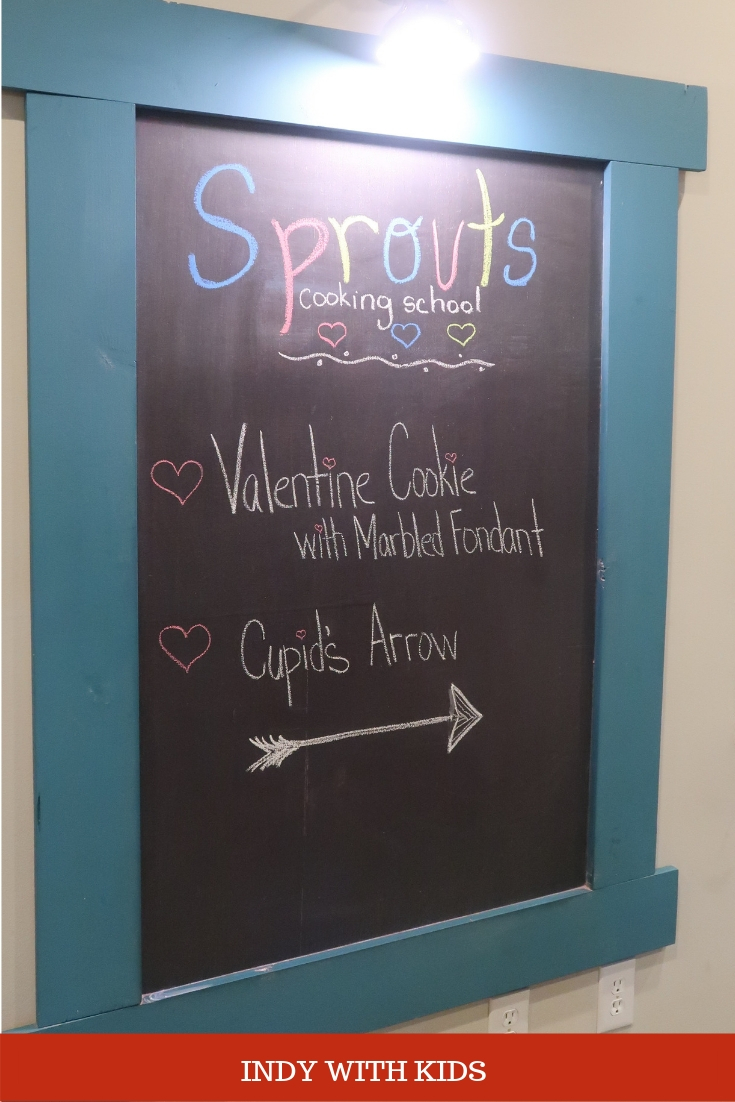 Sprouts
cooking school
Valentine Cookie
with Marbled Fondant
Cupid's Arrow
INDY WITH KIDS